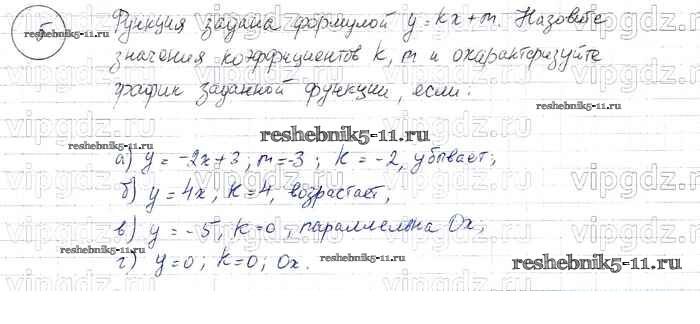 5 Функция задана формулой y = kx + m. Назовите
reshebnik5-11.ru
значения коэффициентов k, m и охарактеризуйте
vipgdz.ru vipgdz.ru vipgdz.ru vipgdz.ru
график заданной функции, если:
reshebnik5-11.ru
reshebnik5-11.ru
а) y = -2x+3, m=-3; k = -2, убывает;
vipgdz.ru vipgdz.ru vipgdz.ru vipgdz.ru
б) y = 4x, k = 4, возрастает,
в) y = -5, k = 0, параллельна Ox;
vipgdz.ru vipgdz.ru vipgdz.ru vipgdz.ru
reshebnik5-11.ru
г) y = 0; k = 0; Ox.
reshebnik5-11.ru